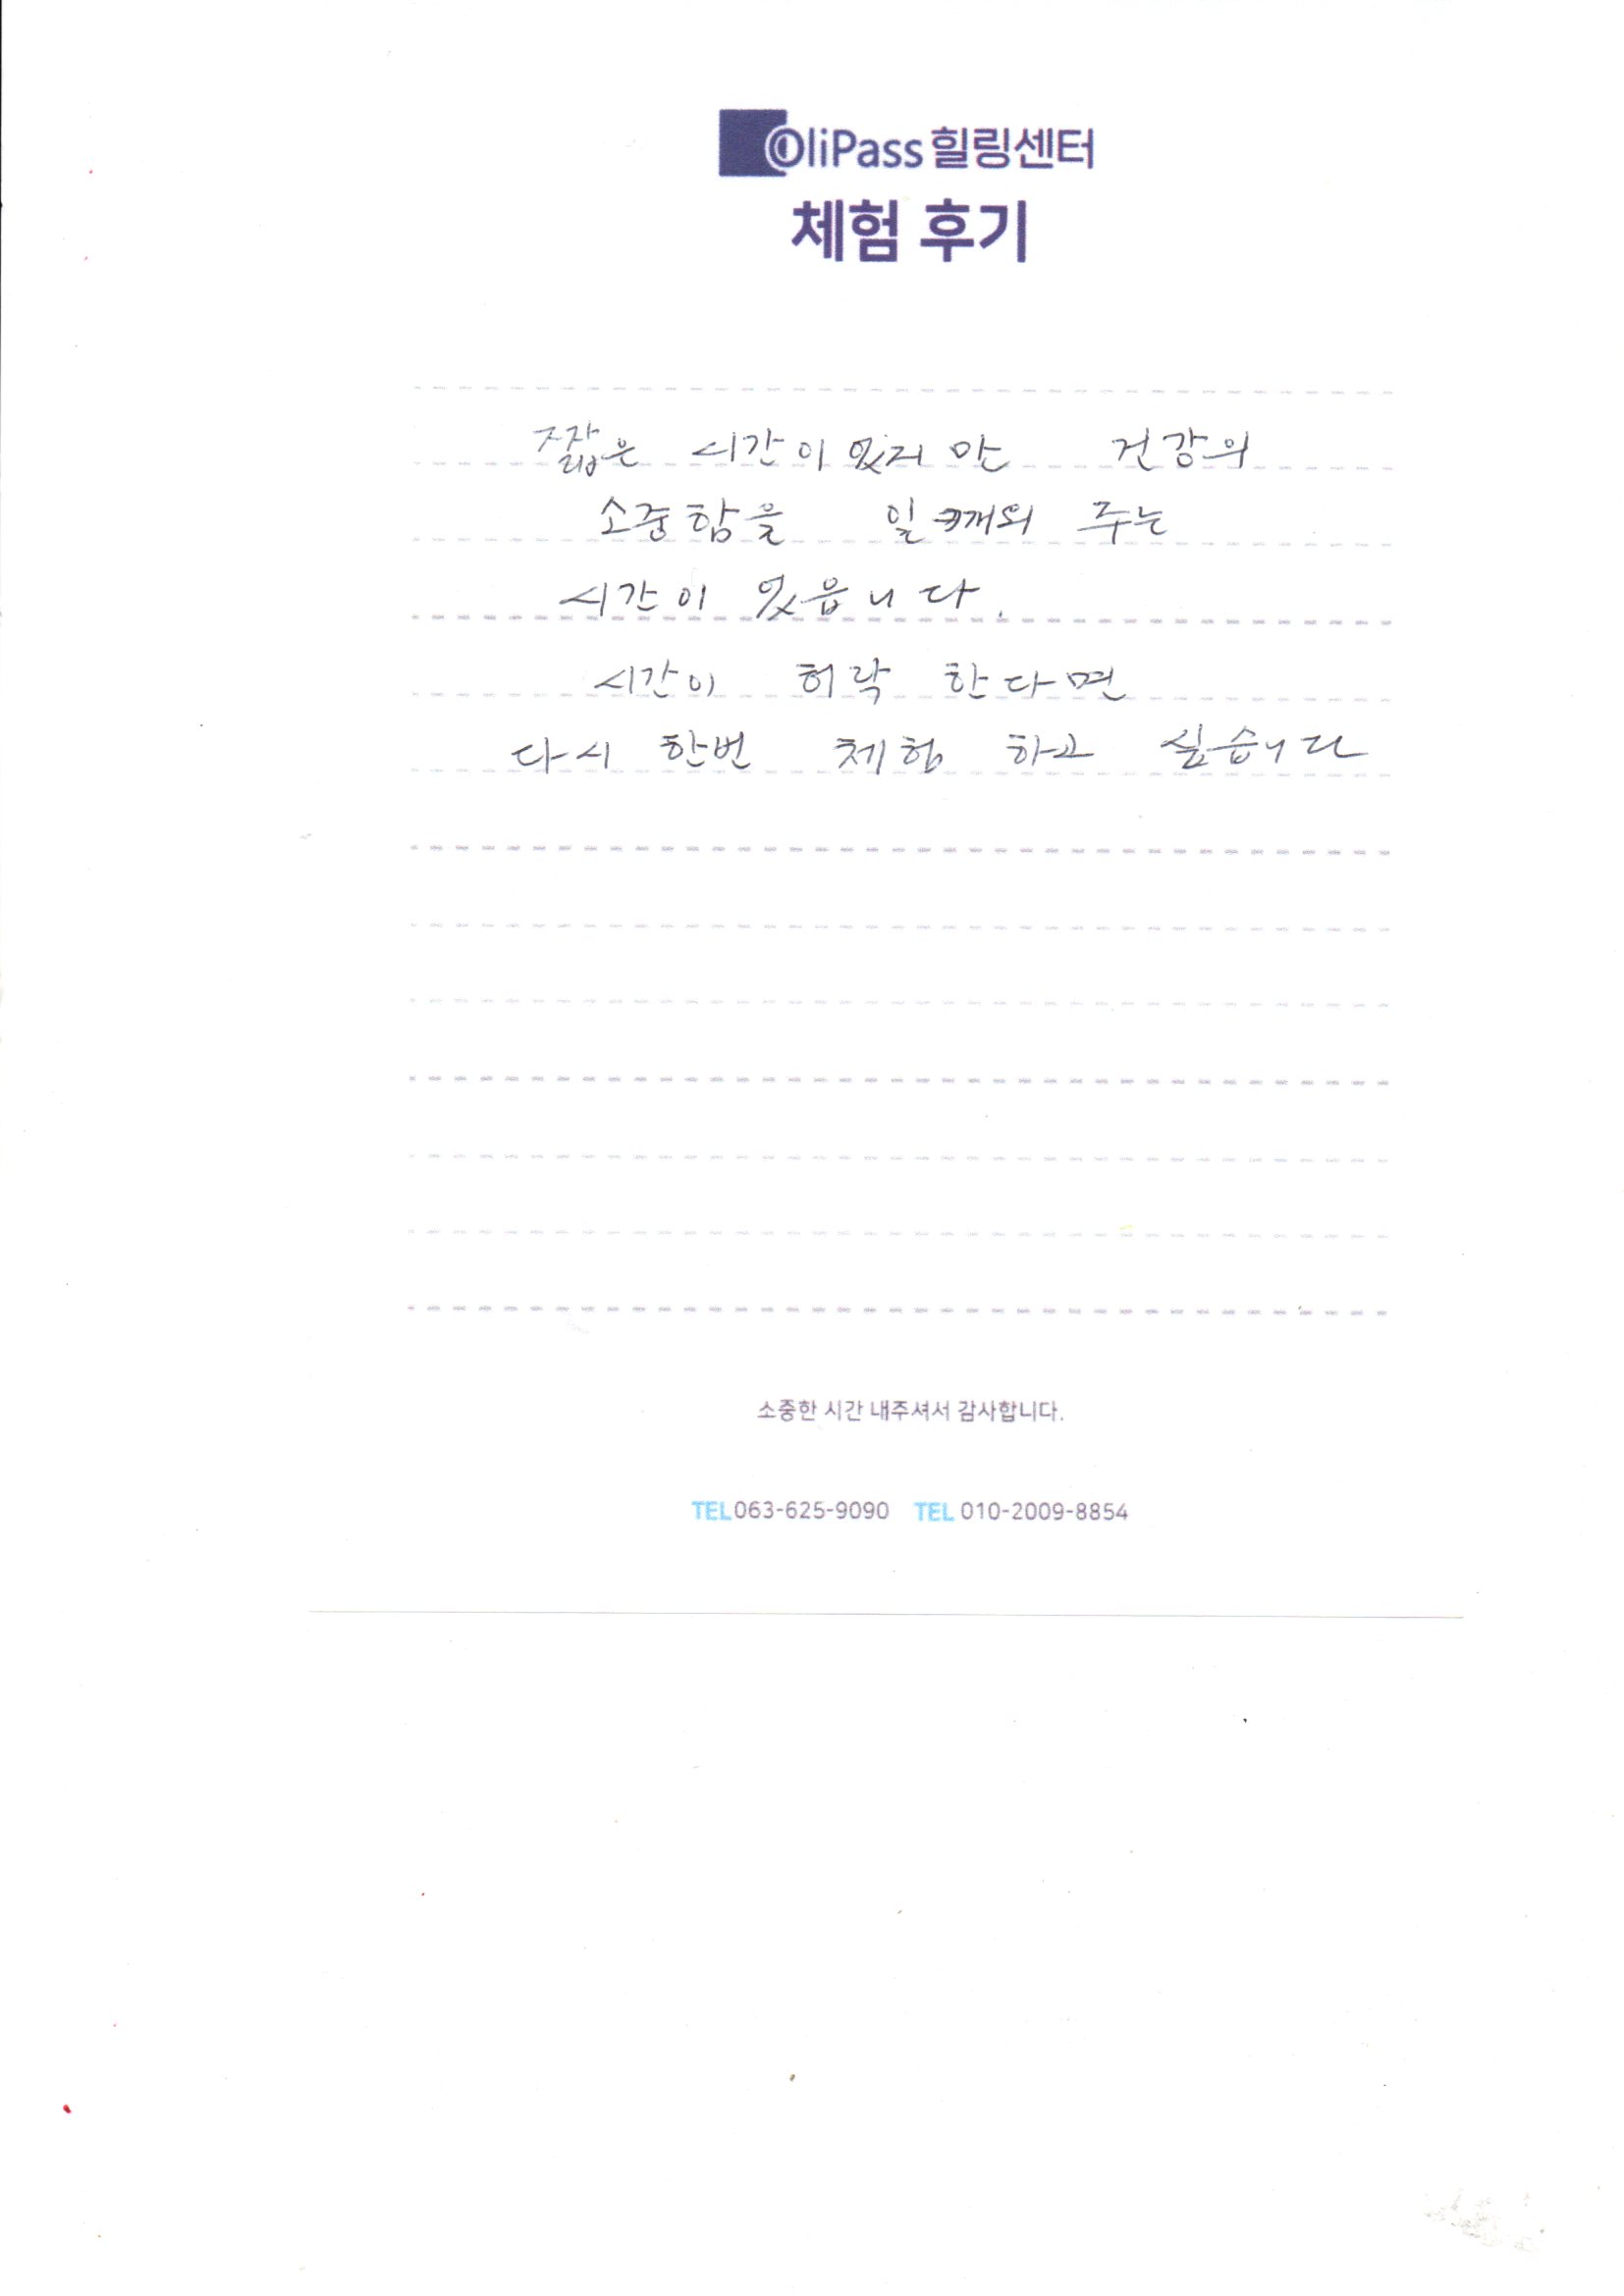 OliPass 힐링센터
체험 후기
짧은 시간이 있지만 건강의
소중함을 일깨워 주는
시간이 있읍니다.
시간이 허락 한다면
다시 한번 체험 하고 싶습니다
소중한 시간 내주셔서 감사합니다.
TEL 063-625-9090 TEL 010-2009-8854